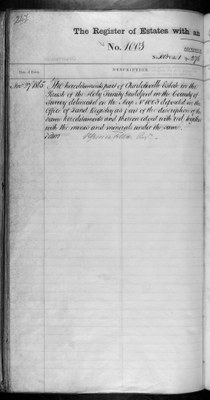 The Register of Estates with an
No. 1003
DESCRIPTION.
1865 The hereditaments part of Estate in the
Parish of the Holy Trinity Guildford in the County of
Surrey delineated on the Map No 1003 deposited in the
Office of Land Registry as part of the description of the
same hereditaments and thereon edged with red together
with the mines and minerals under the same